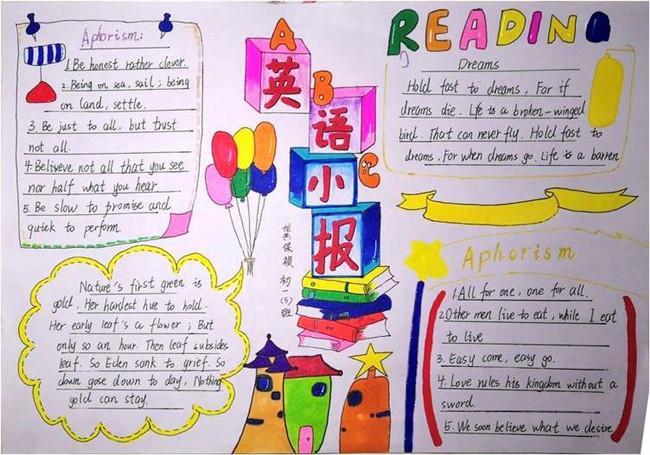 Aphorism:
1. Be honest rather clever.
2. Being on sea, sail; being
on land, settle.
3. Be just to all, but trust
not all.
4. Beliveve not all that you see
nor half what you hear
5. Be slow to promise and
quick to perform.
Nature's first green is
gold. Her hardest hue to hold.
Her early leaf's a flower; But
only so an hour. Then leaf subsides
leaf. So Eden sank to grief. So
down gose down to day, Nothing
gold can stay.
A
英
B
语
C
小
报
初一(5)班
READING
Dreams
Hold fast to dreams, For if
dreams die. Life is a broken-winged
bird. That can never fly. Hold fast to
dreams, For when dreams go. Life is a barren
Aphorism
1. All for one, one for all.
2. Other men live to eat, while I eat
to live
3. Easy come, easy go.
4. Love rules his kingdom without a
sword.
5. We soon believe what we desire